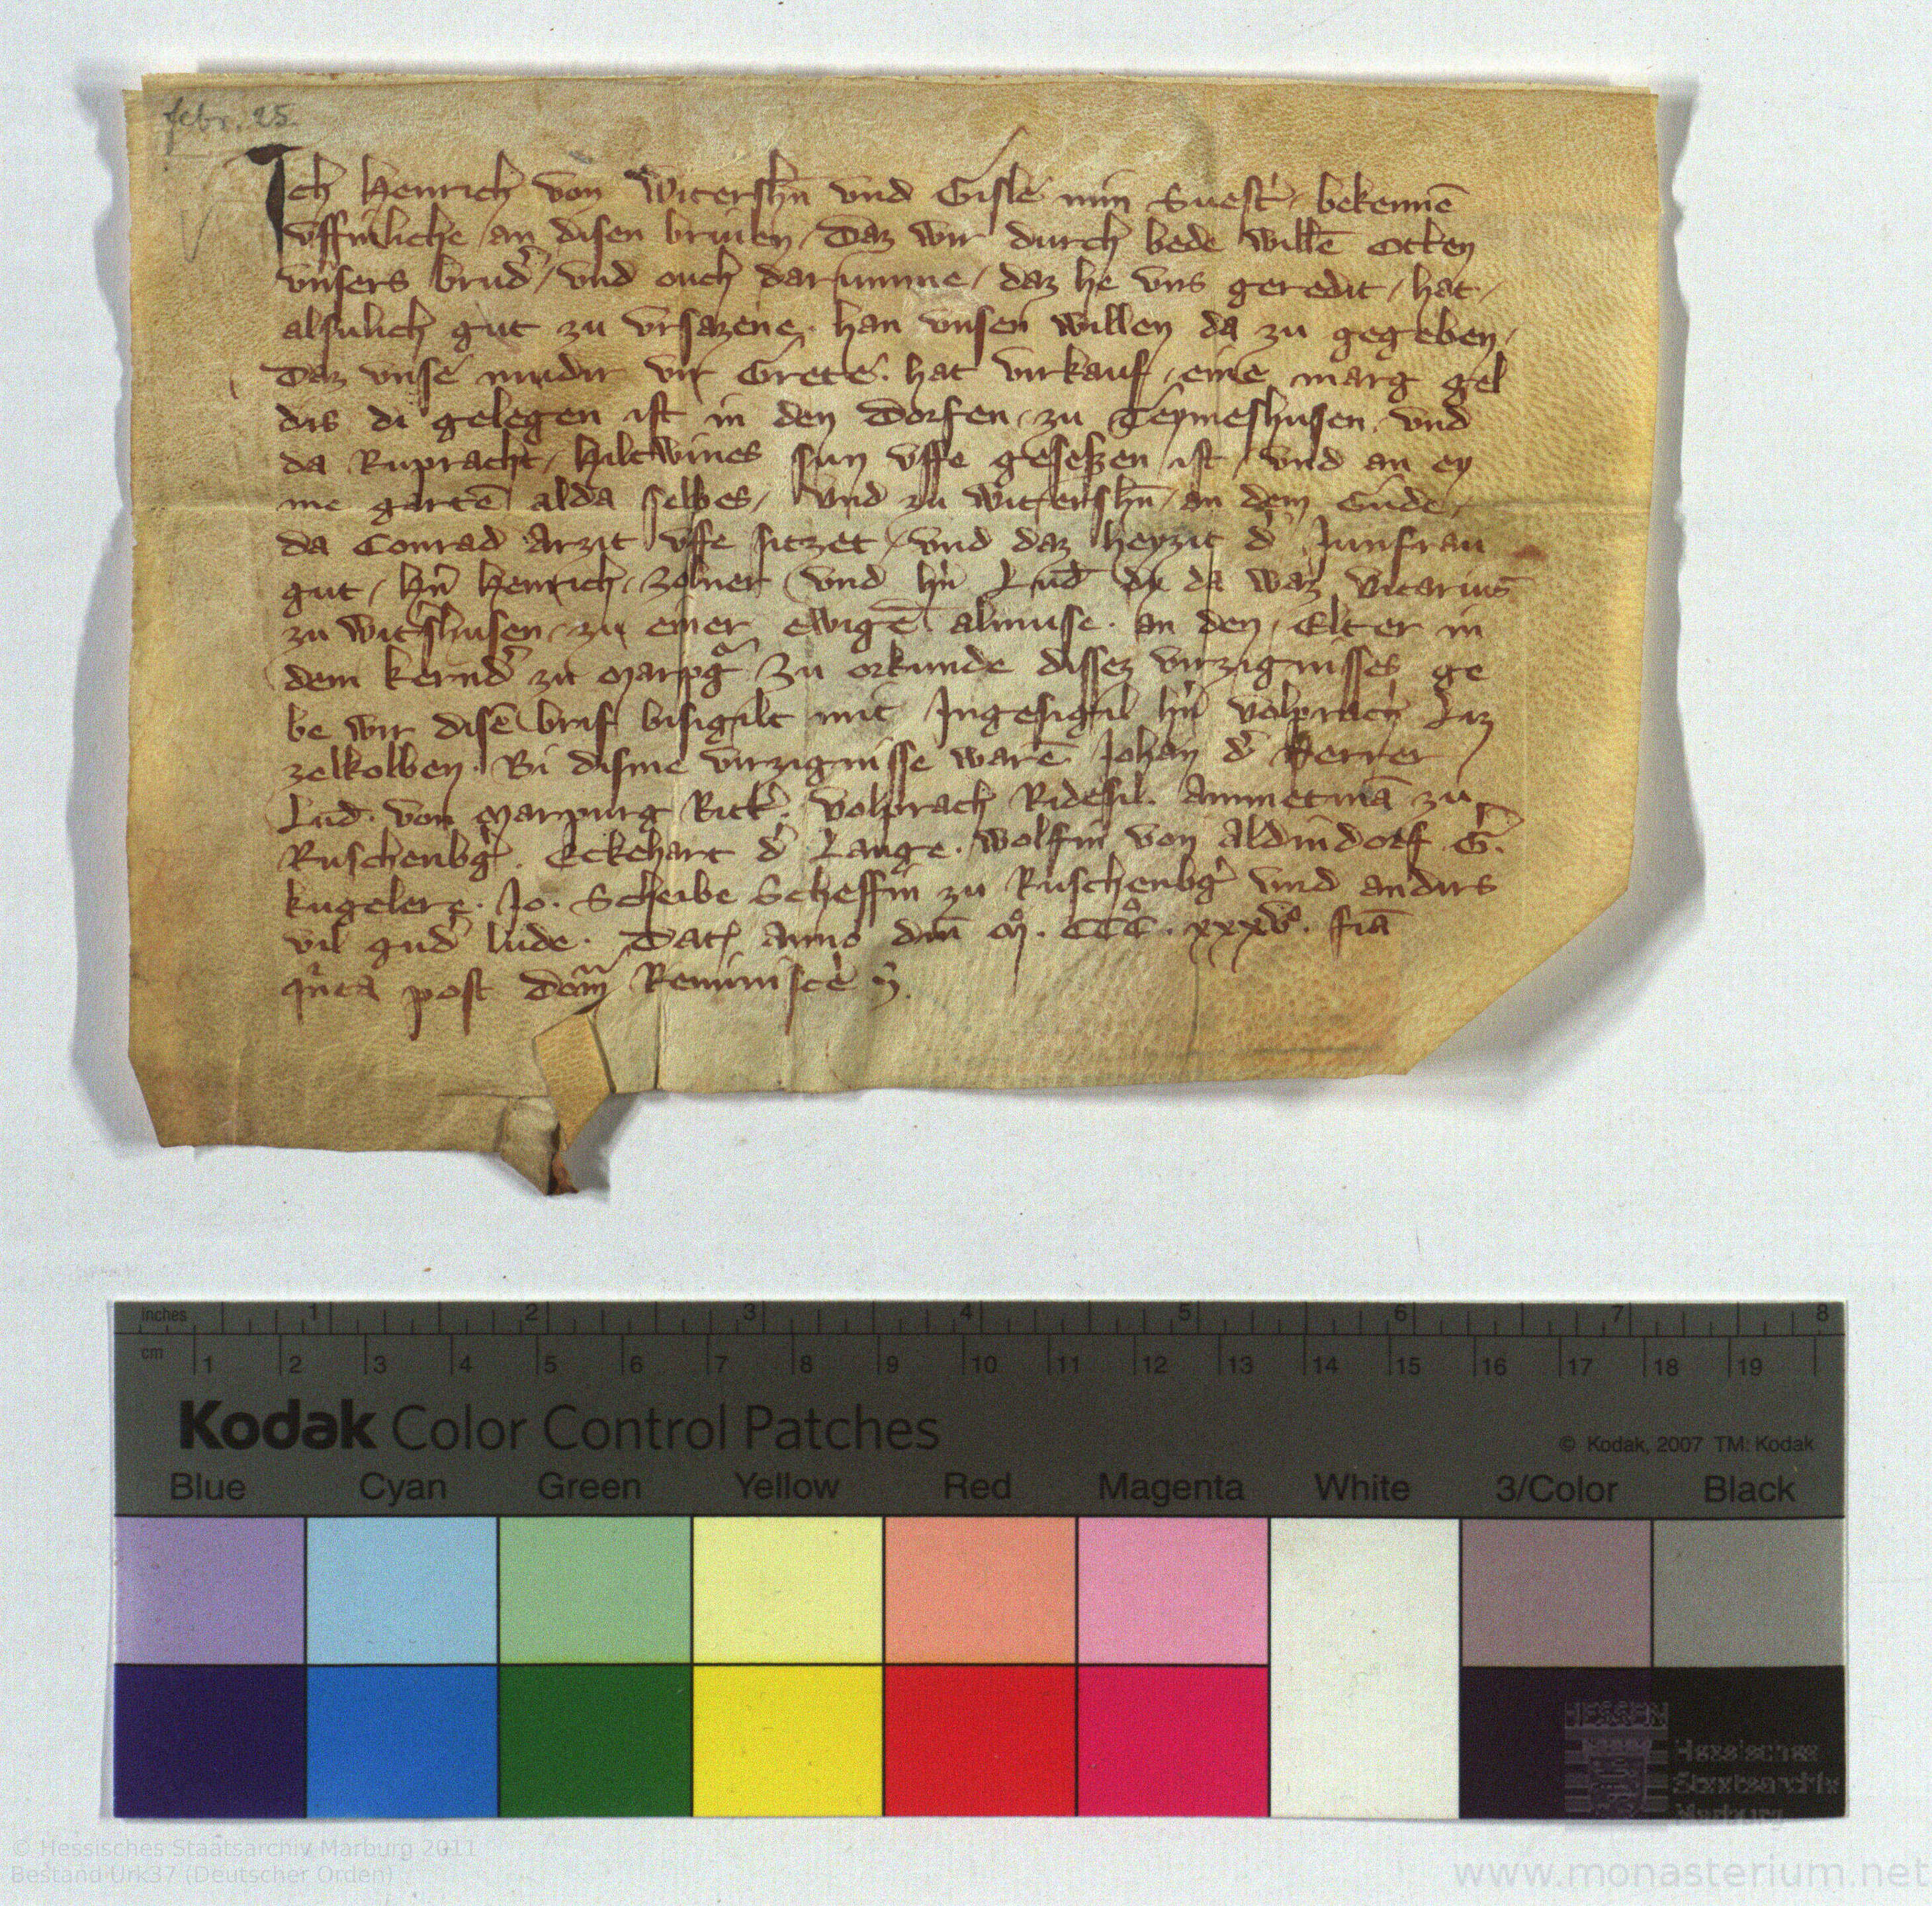 febr. 25
Ich Henrich von Witershn̄ vnd Gisle min Suest', bekennē
vffinliche an disen briuen, Daz wir durch bede willē Otten
vnsers brud', vnd ouch darumme, daz he vns geredit, hat,
alsulich gut zu vrsazene, han vnsen willen da zu gegeben,
Daz vnse mudir vir Grete. hat virkauf, eine marg gel
dis di gelegen ist in den Dorfen, zu Teymeshusen, vnd
da Rupracht, Hiltwines sun vffe geseszen ist, vnd an ey
me gartē alda selbes, vnd zu witershn̄, an dem Gude,
da Conrad Arzit vffe sitzet, vnd daz heyzit d' Junfrau
gut, hn̄ Henrich, Zolner vnd hn̄ Lud da waz vicarius
zu wit'shusen, zu einer ewigē almuse. an den, Elter in
dem kernd' zu Marpg' Zu orkunde dissez virzignisses ge
be wir disē brif bisigilt mit Ingesigil hn̄ volprach Laz
zelkolben. Bi disme virzignisse warē Johan d' Herrer
Lud. von Marpurg Rick'. volprach Ridesil. Ammetmā zu
Ruschenbg'. Eckehart d' Lange. wolfin von Aldindorf G'.
kugelere. Jo. Scheibe Scheffin zu Ruschenbg' vnd andirs
vil gud' lude. Dat̄ anno dn̄i M°. CCC°. xxxv°. fīa
qͥnta post Dom̄ Reminiscē
inches 1 2 3 4 5 6 7 8
cm 1 2 3 4 5 6 7 8 9 10 11 12 13 14 15 16 17 18 19
Kodak Color Control Patches
© Kodak, 2007 TM: Kodak
Blue Cyan Green Yellow Red Magenta White 3/Color Black
HESSEN
Hessisches
Staatsarchiv
Marburg
© Hessisches Staatsarchiv Marburg 2011
Bestand Urk37 (Deutscher Orden)
www.monasterium.net